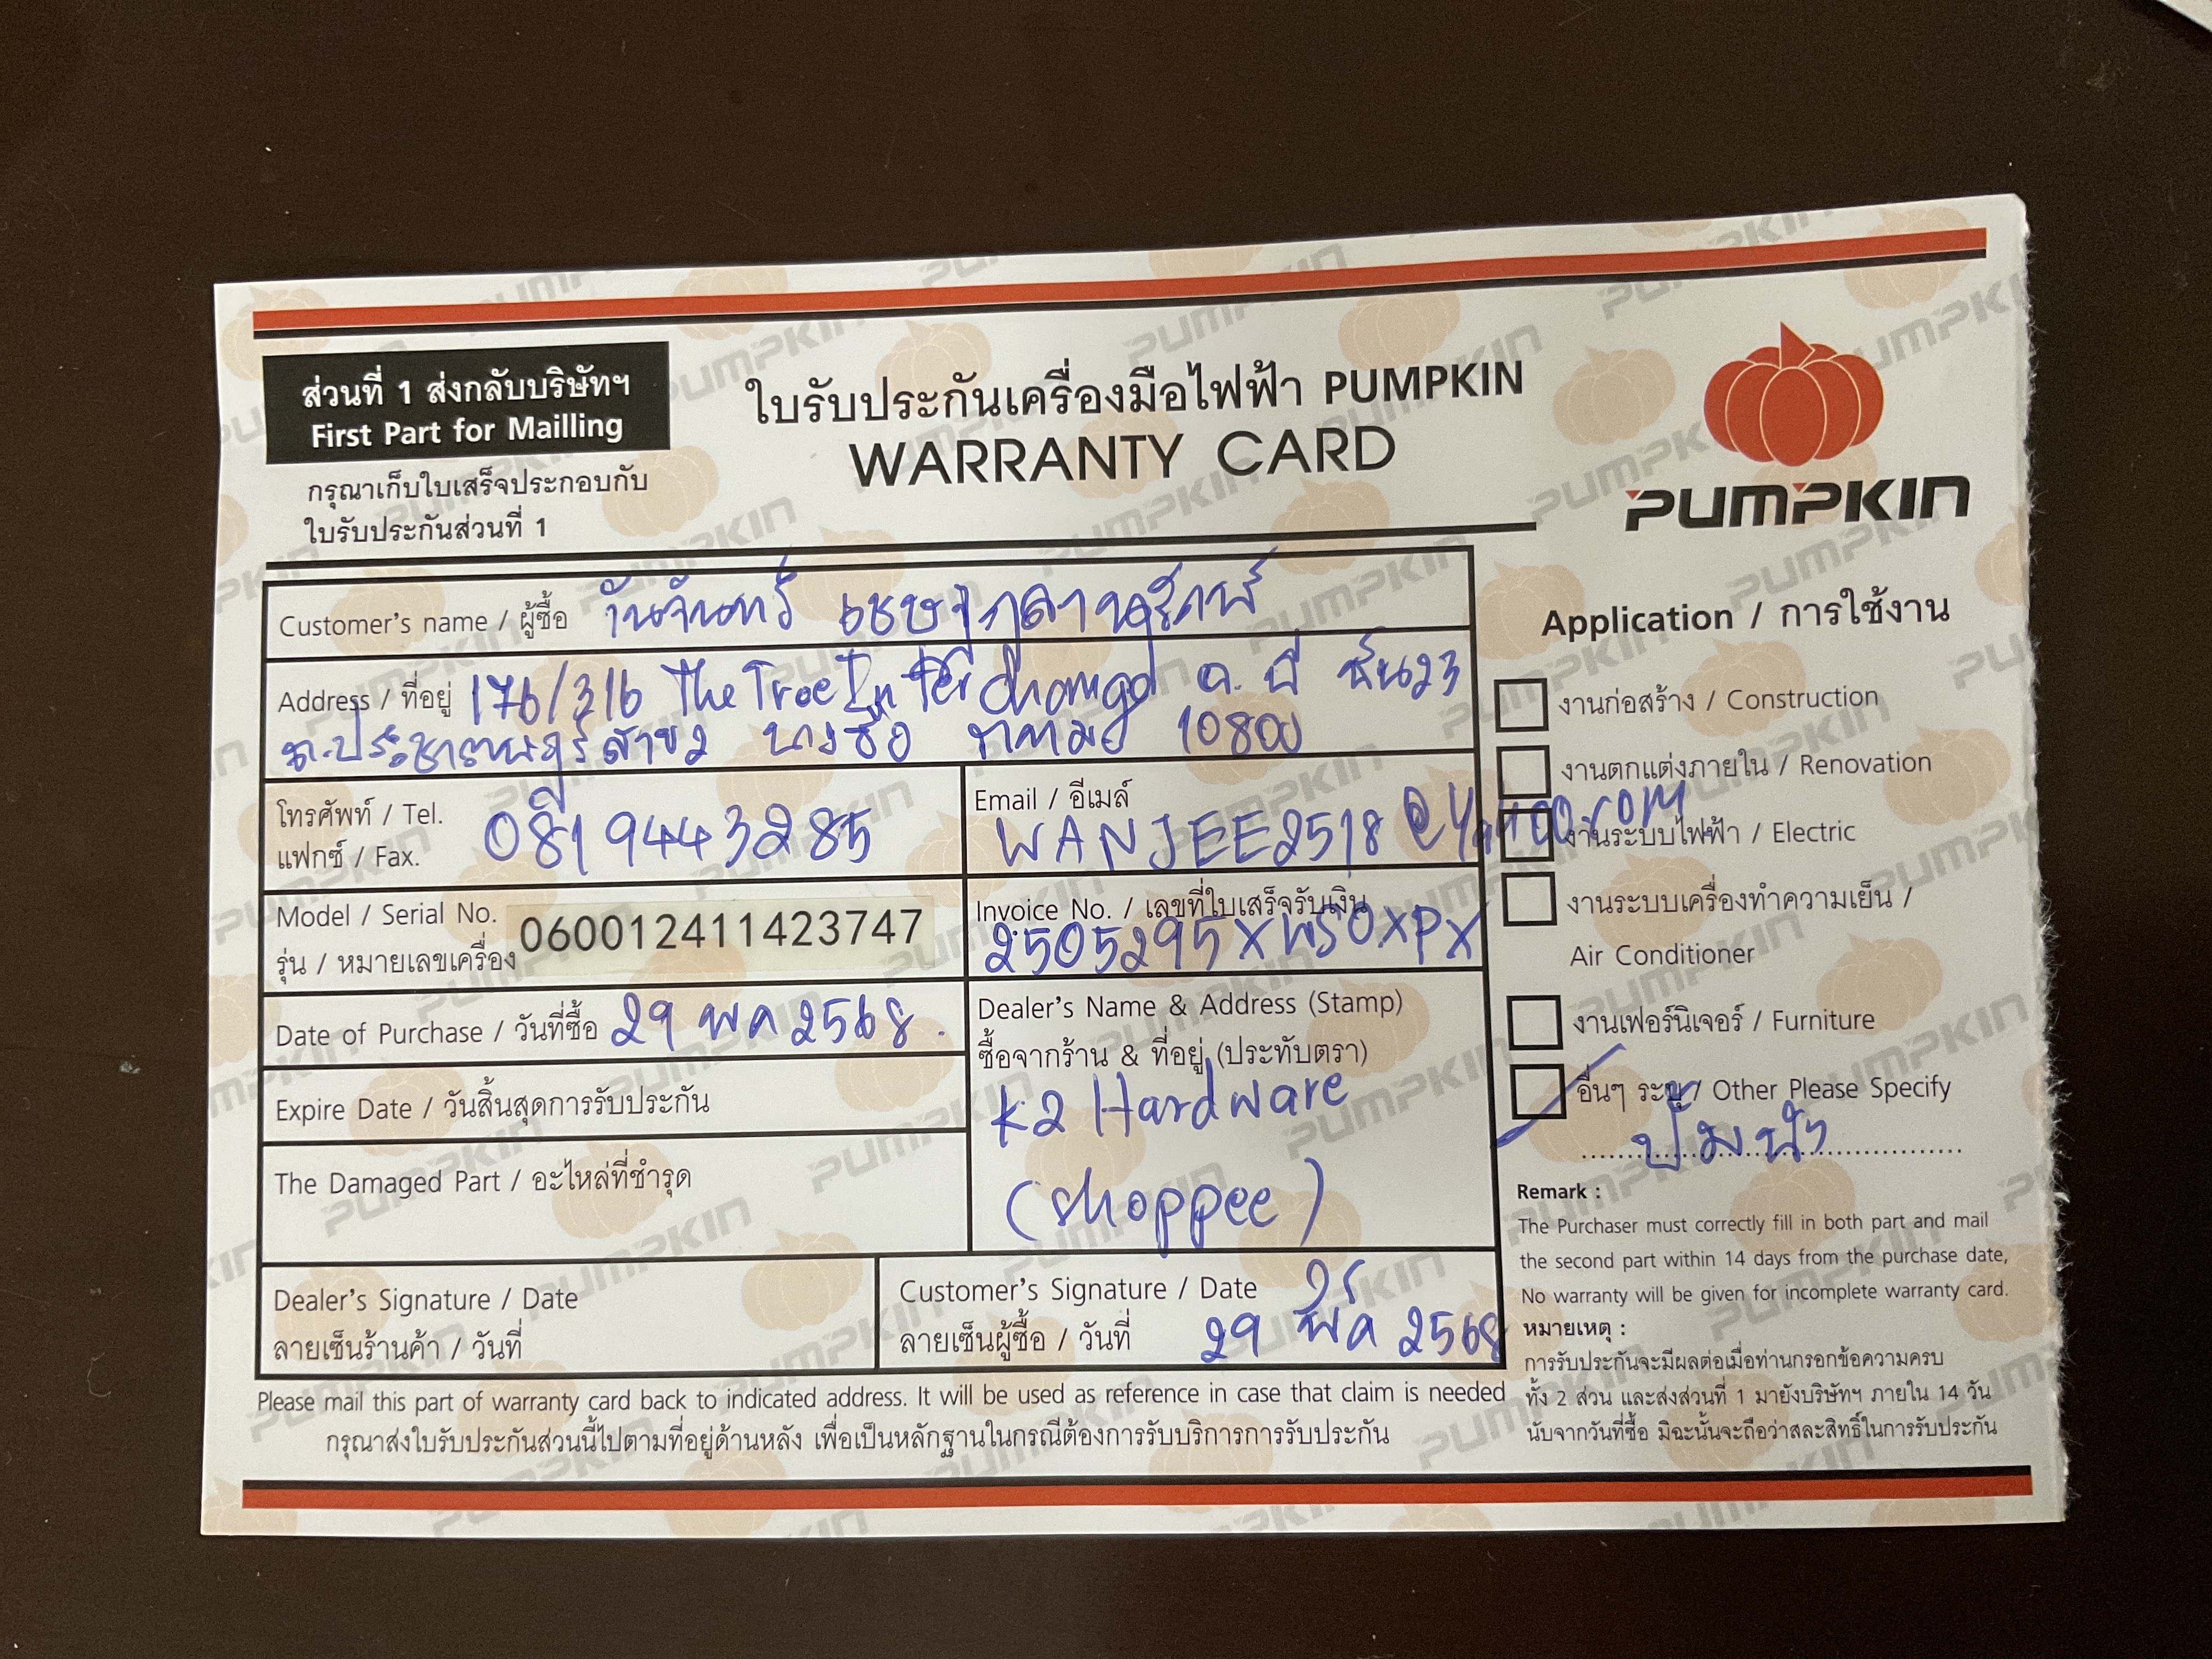 ส่วนที่ 1 ส่งกลับบริษัทฯ
First Part for Mailling
กรุณาเก็บใบเสร็จประกอบกับ
ใบรับประกันส่วนที่ 1
ใบรับประกันเครื่องมือไฟฟ้า PUMPKIN
WARRANTY CARD
PUMPKIN
Customer's name / ผู้ซื้อ วันจันทร์
Address / ที่อยู่ 176/316 The Tree Interchange อ. บี ชั้น 23
ถ.ประชาราษฎร์สาย 2 บางซื่อ กทม 10800
โทรศัพท์ / Tel. 0819443285
แฟกซ์ / Fax.
Email / อีเมล์
WANJEE2518@Yahoo.com
Model / Serial No. 060012411423747
รุ่น / หมายเลขเครื่อง
Invoice No. / เลขที่ใบเสร็จรับเงิน
2505295XWSOXPX
Date of Purchase / วันที่ซื้อ 29 พค 2568.
Expire Date / วันสิ้นสุดการรับประกัน
The Damaged Part / อะไหล่ที่ชำรุด
Dealer's Name & Address (Stamp)
ซื้อจากร้าน & ที่อยู่ (ประทับตรา)
K2 Hardware
(Shoppee)
Dealer's Signature / Date
ลายเซ็นร้านค้า / วันที่
Customer's Signature / Date
ลายเซ็นผู้ซื้อ / วันที่ 29 พค 2568
Please mail this part of warranty card back to indicated address. It will be used as reference in case that claim is needed
กรุณาส่งใบรับประกันส่วนนี้ไปตามที่อยู่ด้านหลัง เพื่อเป็นหลักฐานในกรณีต้องการรับบริการการรับประกัน
Application / การใช้งาน
งานก่อสร้าง / Construction
งานตกแต่งภายใน / Renovation
งานระบบไฟฟ้า / Electric
งานระบบเครื่องทำความเย็น /
Air Conditioner
งานเฟอร์นิเจอร์ / Furniture
อื่นๆ ระบุ / Other Please Specify
ปั๊มน้ำ
Remark :
The Purchaser must correctly fill in both part and mail
the second part within 14 days from the purchase date,
No warranty will be given for incomplete warranty card.
หมายเหตุ :
การรับประกันจะมีผลต่อเมื่อท่านกรอกข้อความครบ
ทั้ง 2 ส่วน และส่งส่วนที่ 1 มายังบริษัทฯ ภายใน 14 วัน
นับจากวันที่ซื้อ มิฉะนั้นจะถือว่าสละสิทธิ์ในการรับประกัน